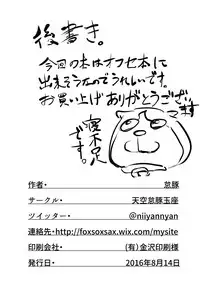 後書き。
今回の本はオフセ本に
出来そうなのでうれしいです。
お買い上げありがとうございます
寝不足
です。
作者・ 怠豚
サークル・ 天空怠豚玉座
ツイッター・ @niiyannyan
連絡先・http://foxsoxsax.wix.com/mysite
印刷会社・ (有)金沢印刷様
発行日・ 2016年8月14日